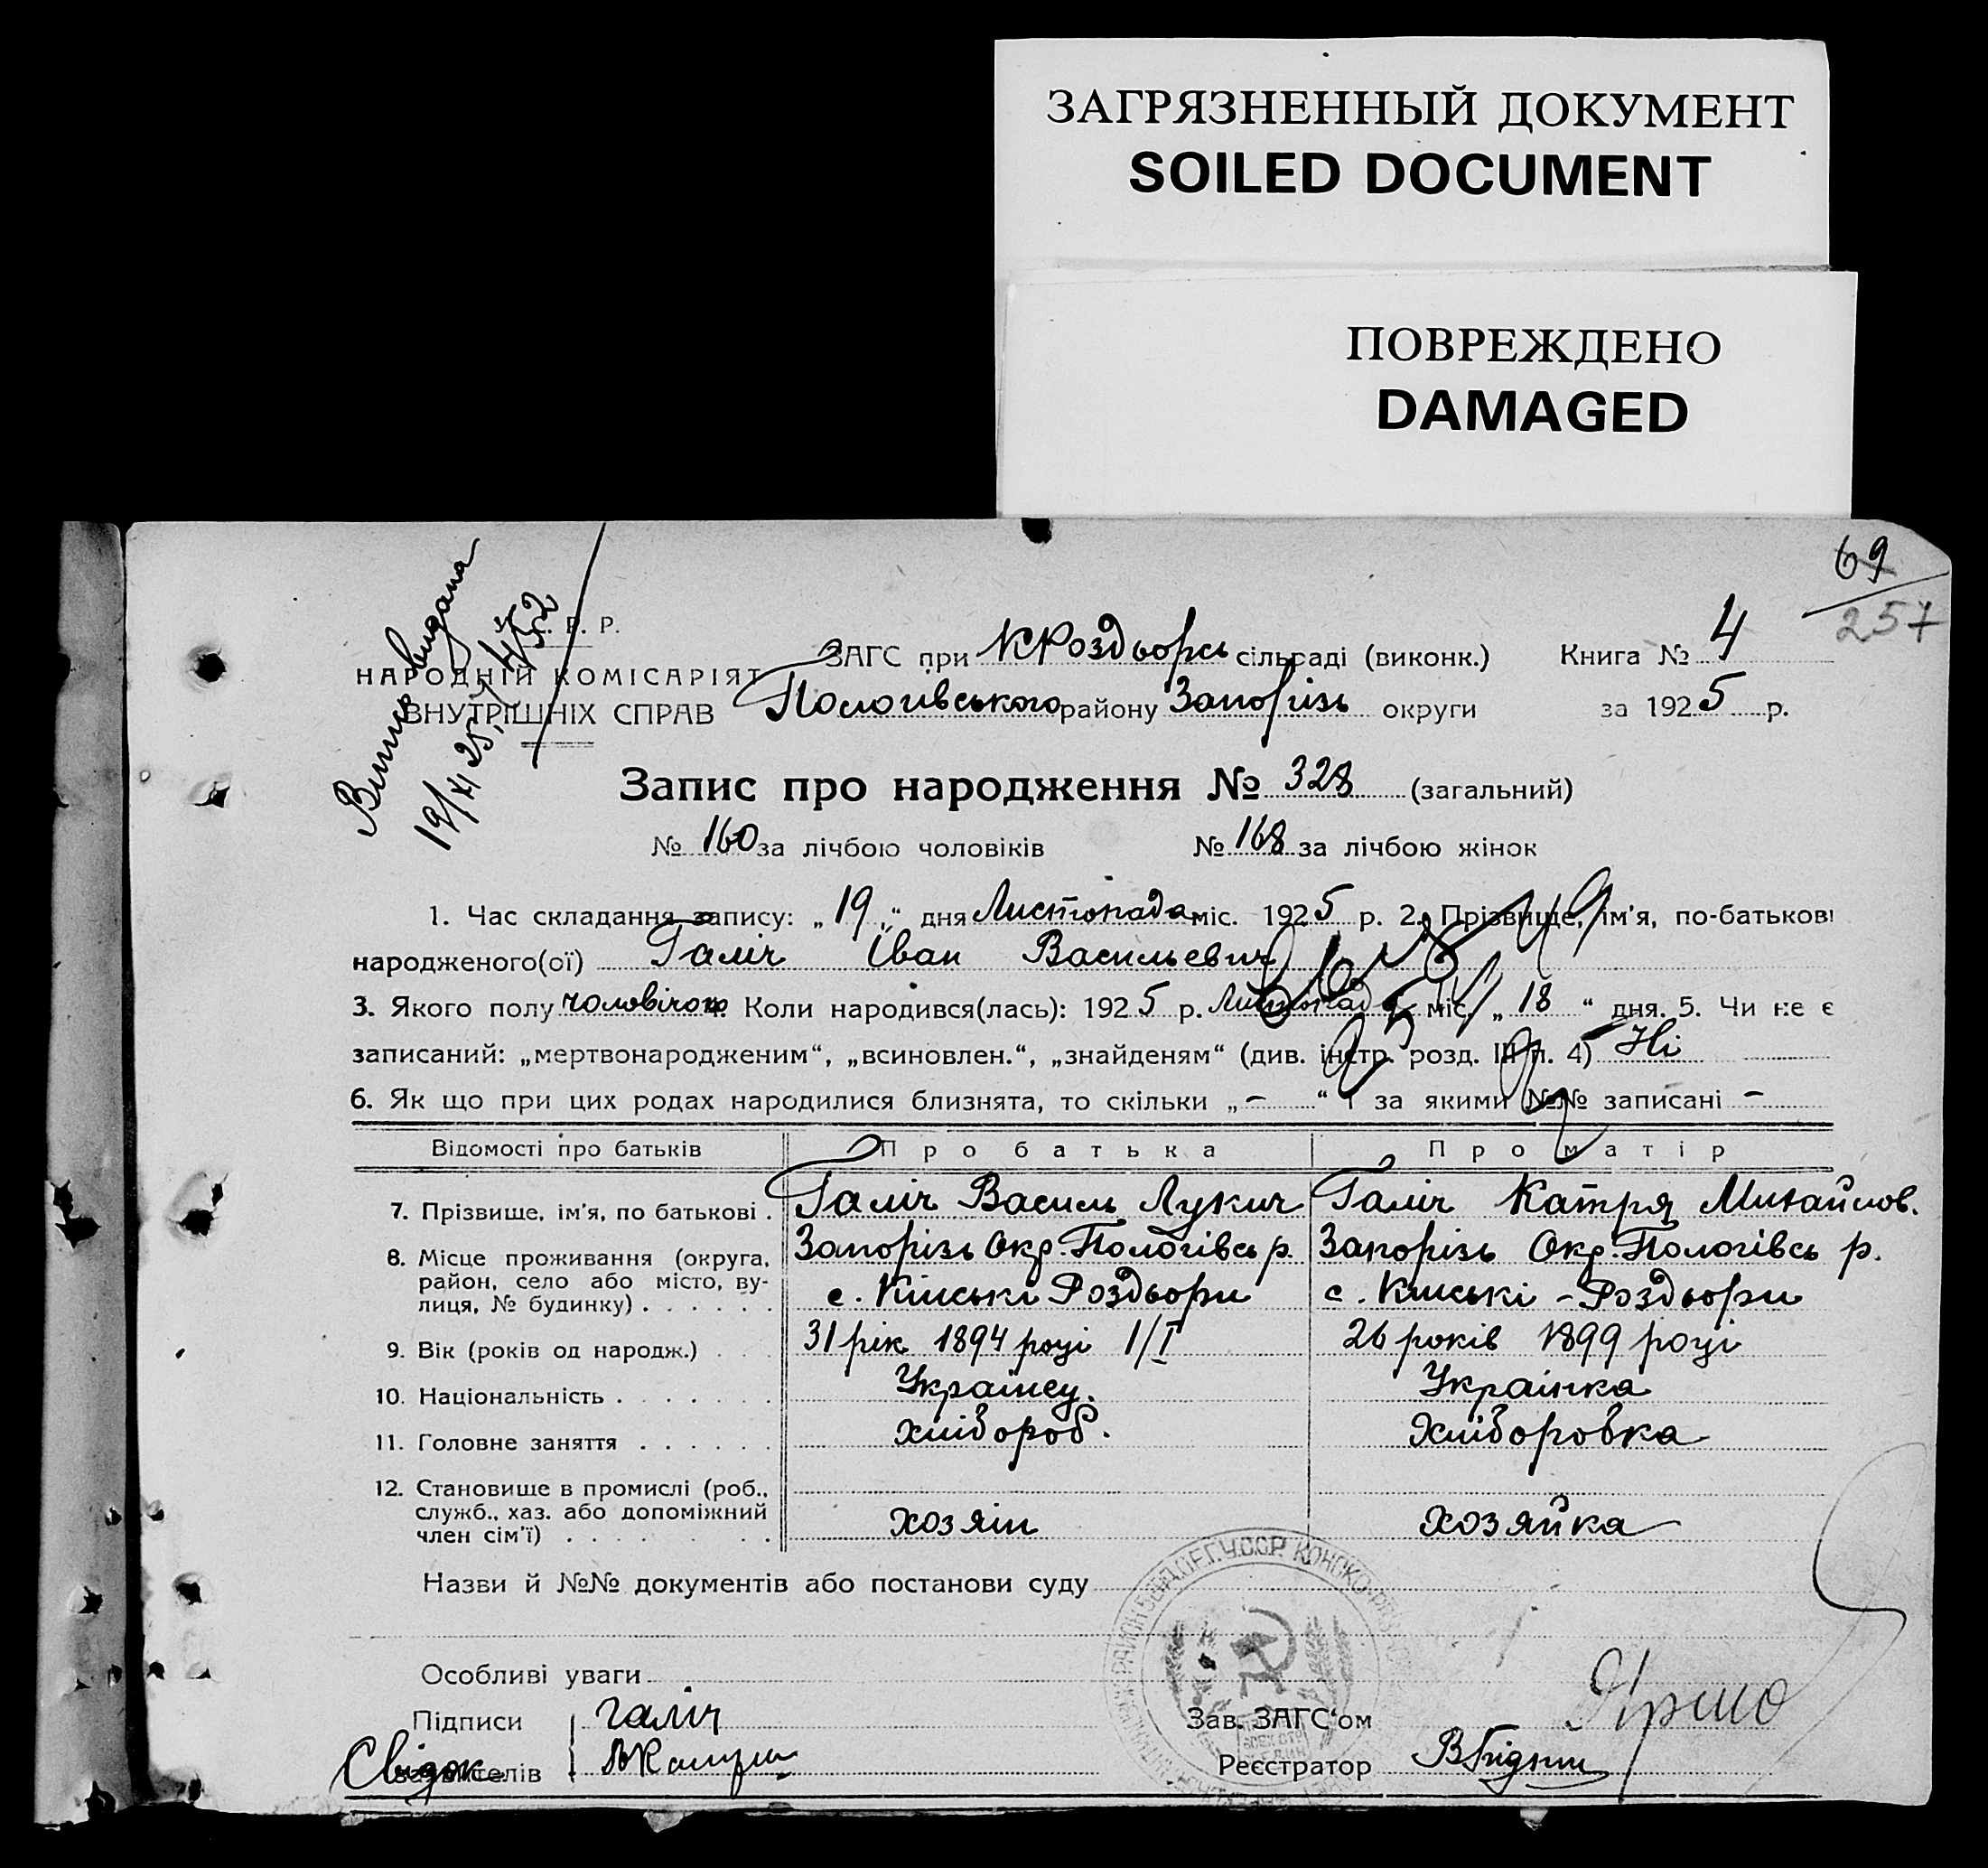 ЗАГРЯЗНЕННЫЙ ДОКУМЕНТ
SOILED DOCUMENT
ПОВРЕЖДЕНО
DAMAGED
69
257
Випись видана
19/XI 25
Р. Р.
НАРОДНІЙ КОМІСАРІЯТ
ВНУТРІШНІХ СПРАВ
ЗАГС при К Роздорсь сільраді (виконк.) Книга № 4
Пологівського району Запорізь округи за 1925 р.
Запис про народження № 328 (загальний)
№ 160 за лічбою чоловіків № 168 за лічбою жінок
1. Час складання запису: „19„“ дня Листопада міс. 1925 р. 2. Прізвище, ім'я, по-батькові
народженого(ої) Галіч Іван Васильевич
3. Якого полу чоловічого 4. Коли народився(лась): 1925 р. Листопад міс. „18“ дня. 5. Чи не є
записаний: „мертвонародженим“, „всиновлен.“, „знайденям“ (див. інстр. розд. III п. 4) Ні
6. Як що при цих родах народилися близнята, то скільки „-“ і за якими №№ записані -
Відомості про батьків Про батька Про матір
7. Прізвище, ім'я, по батькові . Галіч Василь Лукич Галіч Катря Михайлов.
8. Місце проживання (округа, район, село або місто, вулиця, № будинку) Запорізь Окр. Пологівсь р. Запорізь Окр. Пологівсь р.
с. Кінські Роздори с. Кінські - Роздори
9. Вік (років од народж.) 31 рік 1894 році 1/I 26 років 1899 році
10. Національність Украінец. Украінка
11. Головне заняття Хлібороб. Хліборобка
12. Становище в промислі (роб., служб., хаз. або допоміжний член сім'ї) хозяін хозяйка
Назви й №№ документів або постанови суду
Особливі уваги
Підписи Галіч Зав. ЗАГС'ом
Свідок заявителів Реєстратор